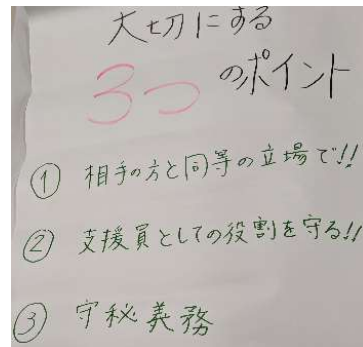 大切にする
3つのポイント
① 相手の方と同等の立場で!!
② 支援員としての役割を守る!!
③ 守秘義務